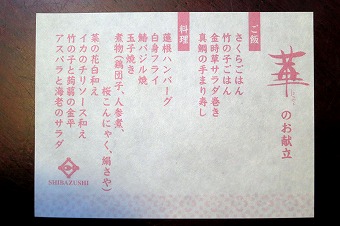 華のお献立
ご飯
さくらごはん
竹の子ごはん
金時草サラダ巻き
真鯛の手まり寿し
料理
蓮根ハンバーグ
白身フライ
鰆バジル焼き
玉子焼き
煮物(鶏団子、人参煮、
桜こんにゃく、絹さや)
菜の花白和え
イカのチリソース和え
竹の子と蒟蒻の金平
アスパラと海老のサラダ
SHIBAZUSHI